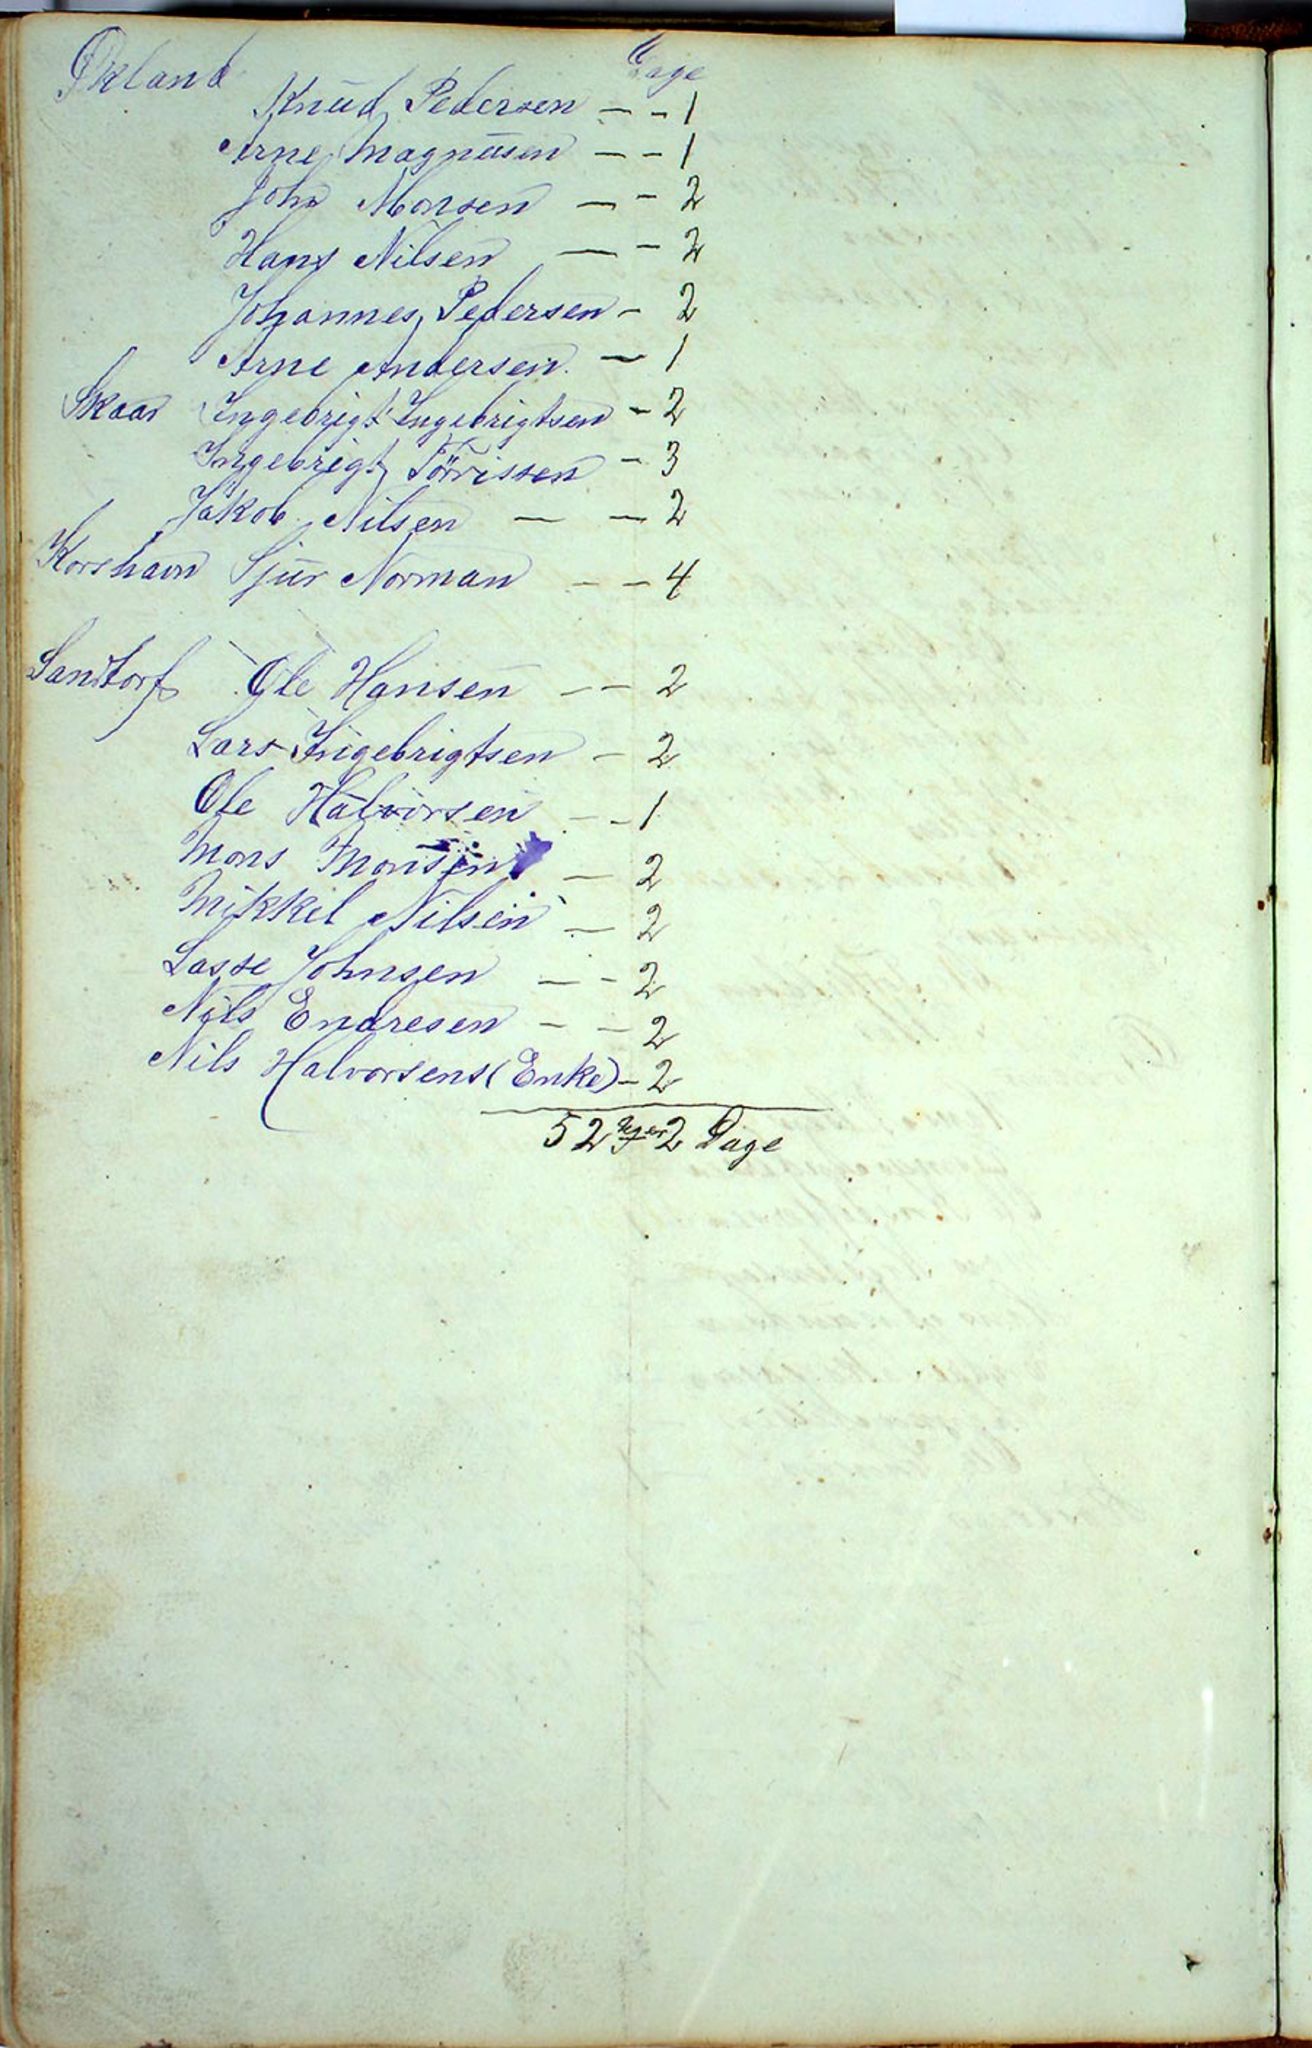 Økland Dage
Knud Pedersen — — 1
Arne Magnusen — — 1
John Monsen — — 2
Hans Nilsen — — 2
Johannes Pedersen — 2
Arne Andersen — 1
Skaar Ingebrigt Ingebrigtsen — 2
Ingebrigt Törrissen — 3
Jakob Nilsen — — 2
Korshavn Sjur Norman — — 4
Sandtorf Ole Hansen — — 2
Lars Ingebrigtsen — 2
Ole Halvorsen — — 1
Mons Monsen — 2
Mikkel Nilsen — 2
Lasse Johnsen — — 2
Nils Endresen — — 2
Nils Halvorsens (Enke) — 2
52 2 Dage